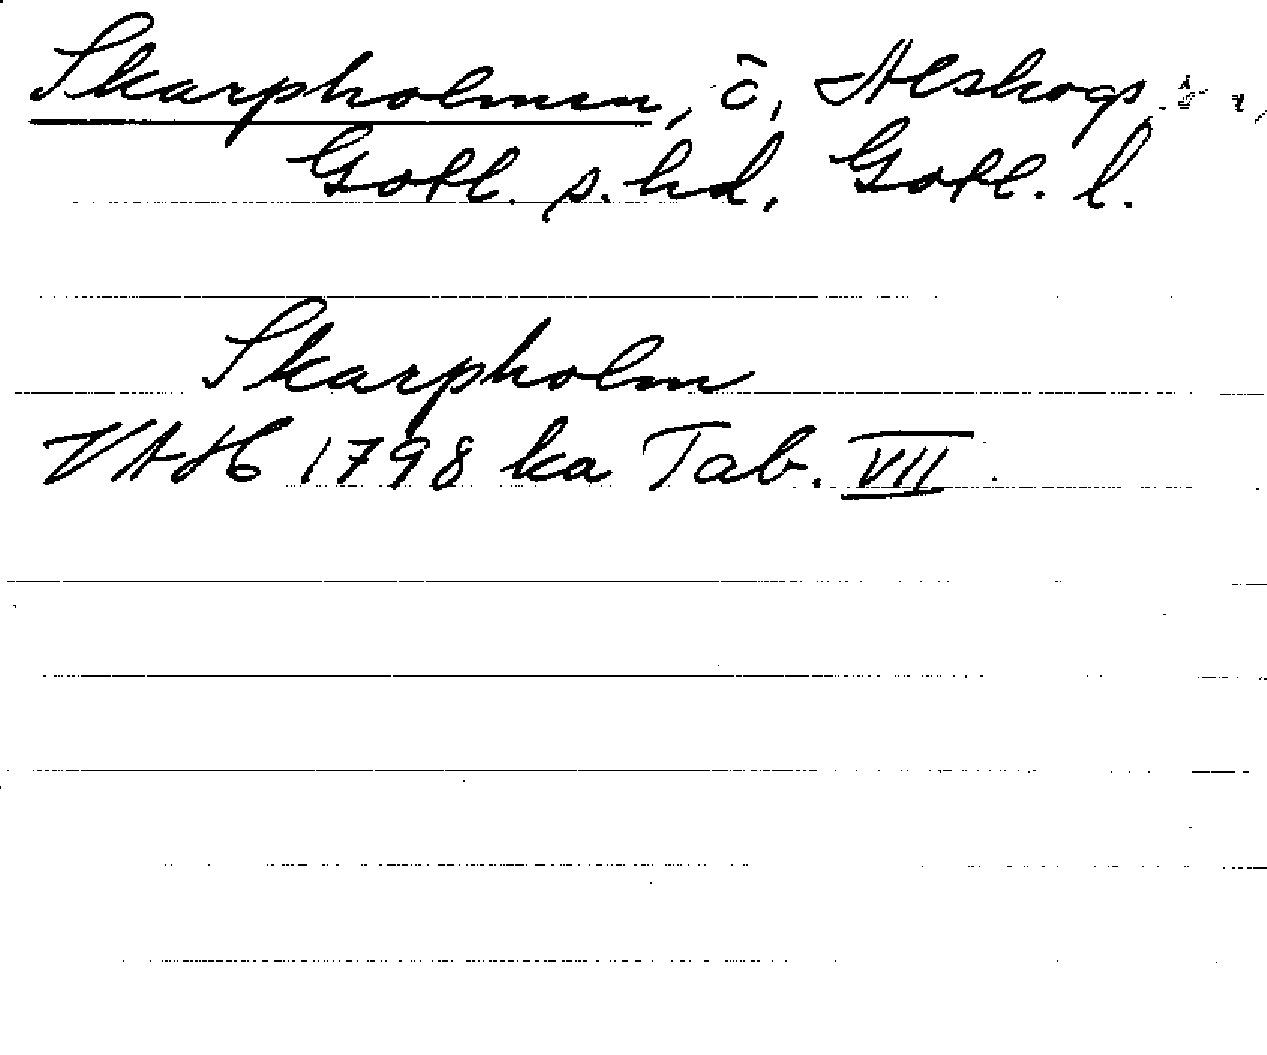 Skarpholmen, ö, Alskogs
Gotl. s. hd, Gotl. l.
Skarpholm
VAH 1798 ka Tab. VII.